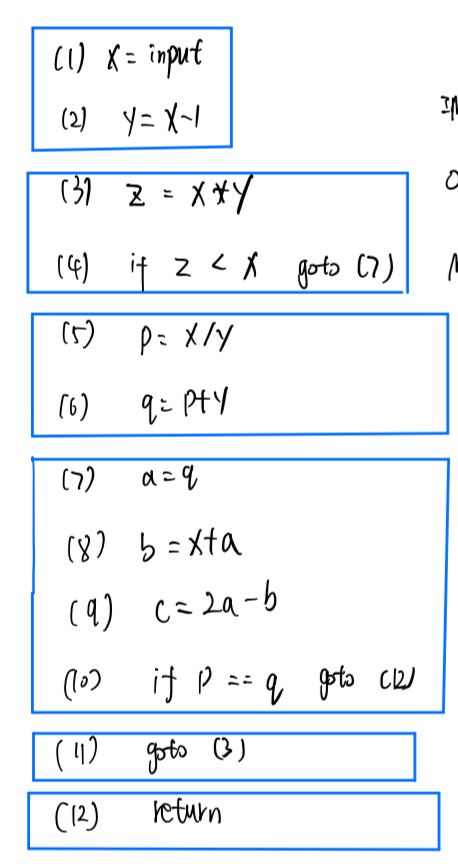 (1) X = input
(2) Y = X-1
(3) Z = X*Y
(4) if Z < X goto (7)
(5) p = X/Y
(6) q = p+Y
(7) a = q
(8) b = x+a
(9) c = 2a-b
(10) if p == q goto (12)
(11) goto (3)
(12) return